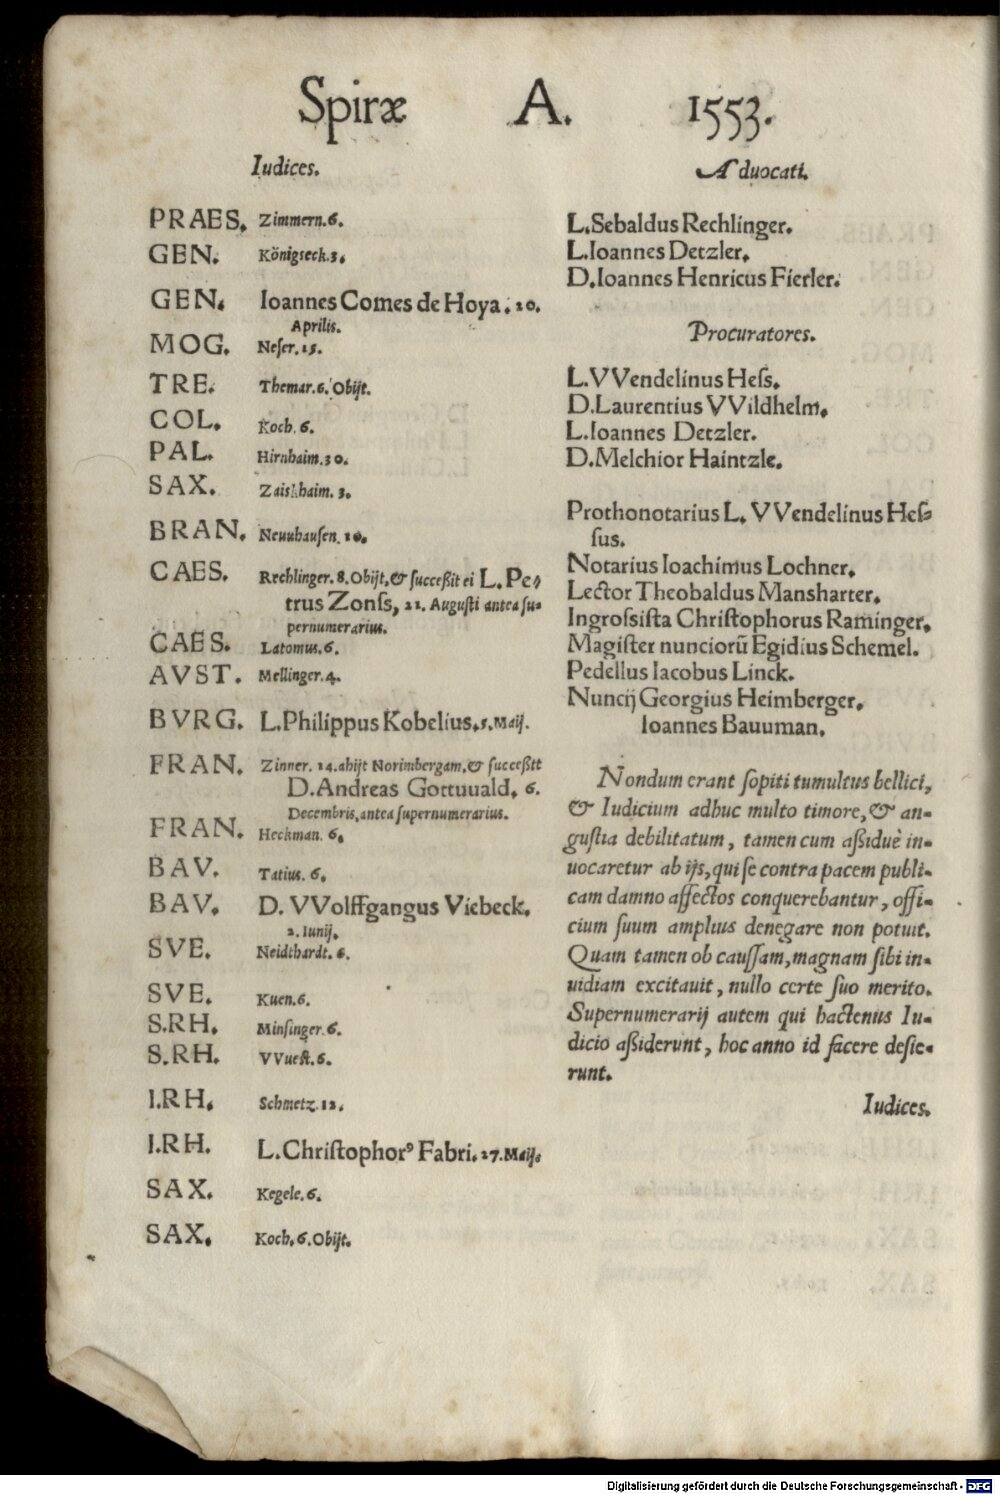 Spiræ A. 1553.
Iudices.
PRAES. Zimmern.6.
GEN. Königseck.3.
GEN. Ioannes Comes de Hoya. 20.
Aprilis.
MOG. Neser.15.
TRE. Themar.6. Obijt.
COL. Koch.6.
PAL. Hirnhaim.30.
SAX. Zaiskhaim. 3.
BRAN. Neuuhausen. 10.
CAES. Rechlinger. 8. Obijt,& succeßit ei L. Pe-
trus Zonſs, 21. Augusti antea su-
pernumerarius.
CAES. Latomus.6.
AVST. Mellinger.4.
BVRG. L.Philippus Kobelius.5.Maij.
FRAN. Zinner. 14.abijt Norimbergam,& succeßit
D.Andreas Gottuuald. 6.
Decembris,antea supernumerarius.
FRAN. Heckman. 6.
BAV. Tatius. 6.
BAV. D. VVolffgangus Viebeck.
2. Iunij.
SVE. Neidthardt. 6.
SVE. Kuen.6.
S.RH. Minsinger.6.
S.RH. VVuest.6.
I.RH. Schmetz.12.
I.RH. L.Christophorꝰ Fabri.27.Maij.
SAX. Kegele.6.
SAX. Koch.6.Obijt.
Aduocati.
L.Sebaldus Rechlinger.
L.Ioannes Detzler.
D.Ioannes Henricus Fierler.
Procuratores.
L.VVendelinus Heſs.
D.Laurentius VVildhelm.
L.Ioannes Detzler.
D.Melchior Haintzle.
Prothonotarius L. VVendelinus Heſ-
ſus.
Notarius Ioachimus Lochner.
Lector Theobaldus Mansharter.
Ingroſsiſta Chriſtophorus Raminger.
Magiſter nunciorũ Egidius Schemel.
Pedellus Iacobus Linck.
Nuncij Georgius Heimberger.
Ioannes Bauuman.
Nondum erant ſopiti tumultus bellici,
& Iudicium adhuc multo timore,& an-
guſtia debilitatum, tamen cum aßiduè in-
uocaretur ab ijs,qui ſe contra pacem publi-
cam damno affectos conquerebantur, offi-
cium ſuum amplius denegare non potuit.
Quam tamen ob cauſſam,magnam ſibi in-
uidiam excitauit, nullo certe ſuo merito.
Supernumerarij autem qui hactenus Iu-
dicio aßiderunt, hoc anno id facere deſie-
runt.
Iudices.
Digitalisierung gefördert durch die Deutsche Forschungsgemeinschaft - DFG